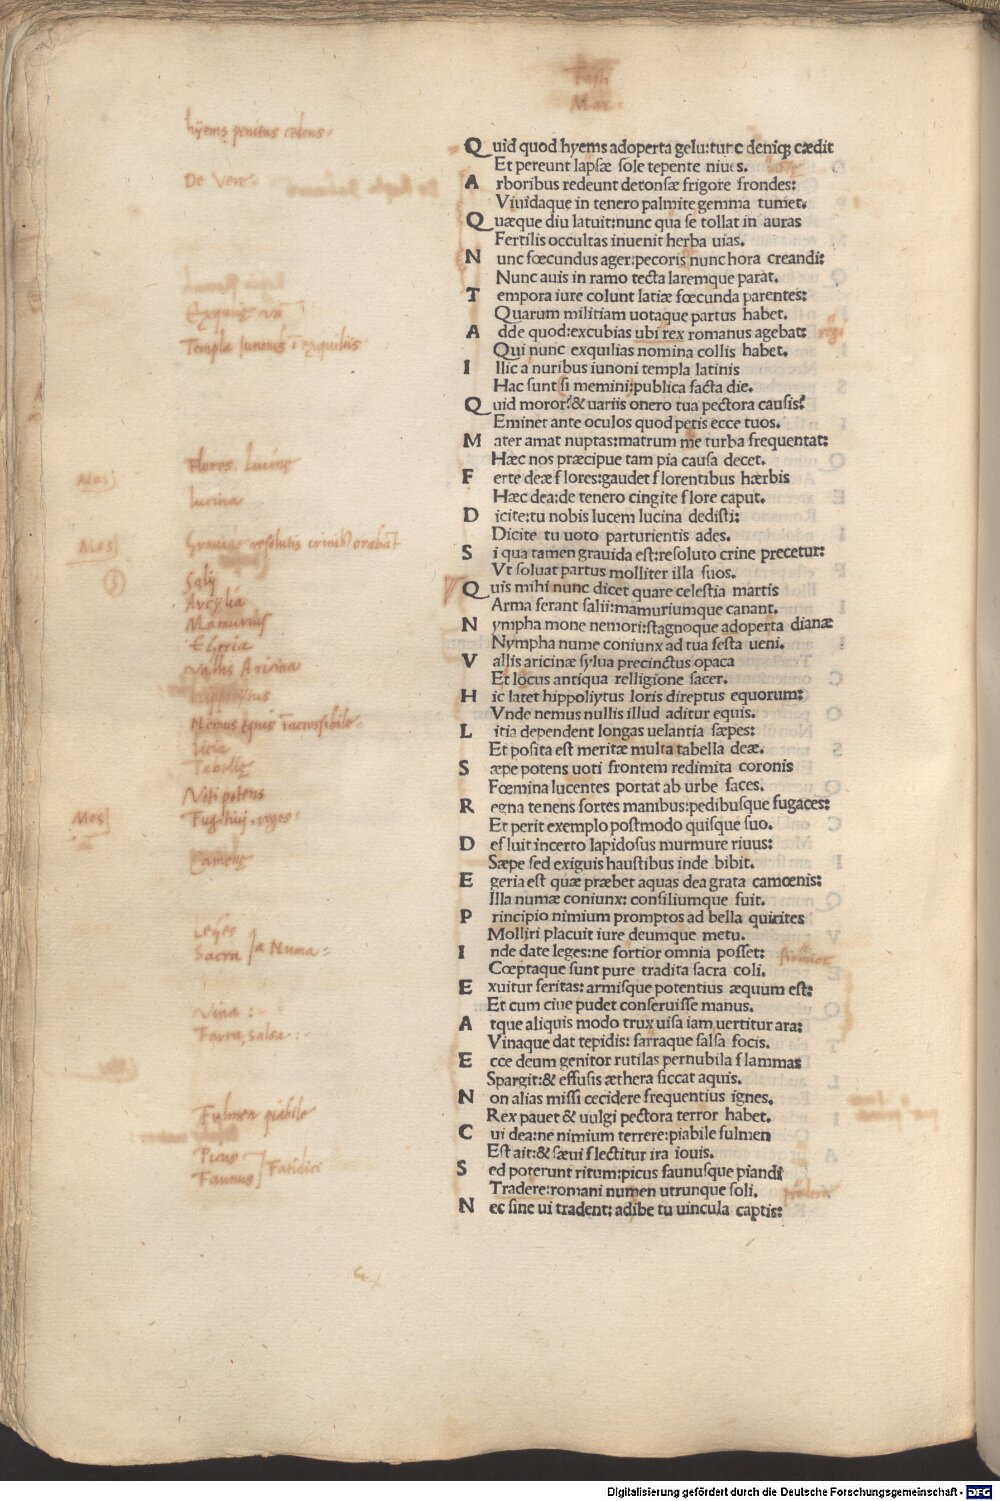 Fasti
Mar.
hyems penitus cedens:
De Vere
Exquilię
Templa Junonis ī exquiliis
Flores. Lucinę
Mos
lucina
Grauidę resolutis crinib orabāt
Mos
Salij
Ancylia
Mamurius
Egeria
Vallis Aricina
Hippolytus
Nemus equis īaccessibile
Licia
Tabellę
Voti potens
Fugitiui reges
Mos
Camenę
Leges
Sacra
a Numa
Vina
Farra, salsa
Fulmen piabile
Picus
Faunus
Fatidici
Quid quod hyems adoperta gelu:tunc deniq; cædit
Et pereunt lapsæ sole tepente niues.
Arboribus redeunt detonsæ frigore frondes:
Viuidaque in tenero palmite gemma tumet.
Quæque diu latuit:nunc qua se tollat in auras
Fertilis occultas inuenit herba uias.
Nunc fœcundus ager:pecoris nunc hora creandi:
Nunc auis in ramo tecta laremque parat.
Tempora iure colunt latiæ fœcunda parentes:
Quarum militiam uotaque partus habet.
Adde quod:excubias ubi rex romanus agebat: regi
Qui nunc exquilias nomina collis habet.
Illic a nuribus iunoni templa latinis
Hac sunt si memini:publica facta die.
Quid moror:& uariis onero tua pectora causis?
Eminet ante oculos quod petis ecce tuos.
Mater amat nuptas:matrum me turba frequentat:
Hæc nos præcipue tam pia causa decet.
Ferte deæ flores:gaudet florentibus hærbis
Hæc dea:de tenero cingite flore caput.
Dicite:tu nobis lucem lucina dedisti:
Dicite tu uoto parturientis ades.
Si qua tamen grauida est:resoluto crine precetur:
Vt soluat partus molliter illa suos.
Quis mihi nunc dicet quare celestia martis
Arma ferant salii:mamuriumque canant.
Nympha mone nemori:stagnoque adoperta dianæ
Nympha nume coniunx ad tua festa ueni.
Vallis aricinæ sylua precinctus opaca
Et locus antiqua relligione sacer.
Hic latet hippoliytus loris direptus equorum:
Vnde nemus nullis illud aditur equis.
Litia dependent longas uelantia sæpes:
Et posita est meritæ multa tabella deæ.
Sæpe potens uoti frontem redimita coronis
Fœmina lucentes portat ab urbe faces.
Regna tenens fortes manibus:pedibusque fugaces:
Et perit exemplo postmodo quisque suo.
Defluit incerto lapidosus murmure riuus:
Sæpe sed exiguis haustibus inde bibit.
Egeria est quæ præbet aquas dea grata camœnis:
Illa numæ coniunx: consiliumque fuit.
Principio nimium promptos ad bella quirites
Molliri placuit iure deumque metu.
Inde date leges:ne fortior omnia posset: firmior
Cœptaque sunt pure tradita sacra coli.
Exuitur feritas: armisque potentius æquum est:
Et cum ciue pudet conseruisse manus.
Atque aliquis modo trux uisa iam uertitur ara:
Vinaque dat tepidis: farraque salsa focis.
Ecce deum genitor rutilas pernubila flammas
Spargit:& effusis æthera siccat aquis.
Non alias missi cecidere frequentius ignes.
Rex pauet & uulgi pectora terror habet.
Cui dea:ne nimium terrere:piabile fulmen
Est ait:& sæui flectitur ira iouis.
Sed poterunt ritum:picus faunusque piandi
Tradere:romani numen utrunque soli. prodere
Nec sine ui tradent: adibe tu uincula captis:
Digitalisierung gefördert durch die Deutsche Forschungsgemeinschaft - DFG